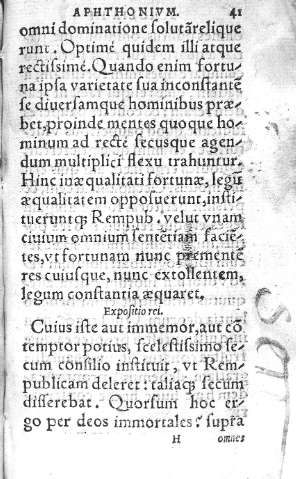 APHTHONIVM. 41
omni dominatione solutã relique
runt. Optimé quidem illi atque
rectissimé. Quando enim fortu-
na ipsa varietate sua inconstantẽ
se diuersamque hominibus præ-
bet, proinde mentes quoque ho-
minum ad recté secusque agen-
dum multiplici flexu trahuntur.
Hinc inæqualitati fortunæ, legũ
æqualitatem opposuerunt, insti-
tuerũtq; Rempub. velut vnam
ciuium omnium sentẽtiam faciẽ-
tes, vt fortunam nunc premente
res cuiusque, nunc extollentem,
legum constantia æquaret.
Expositio rei.
Cuius iste aut immemor, aut cõ
temptor potius, scelestissimo se-
cum consilio instituit, vt Rem-
publicam deleret: taliaq; secum
disserebat. Quorsum hoc er-
go per deos immortales? supra
H omnes